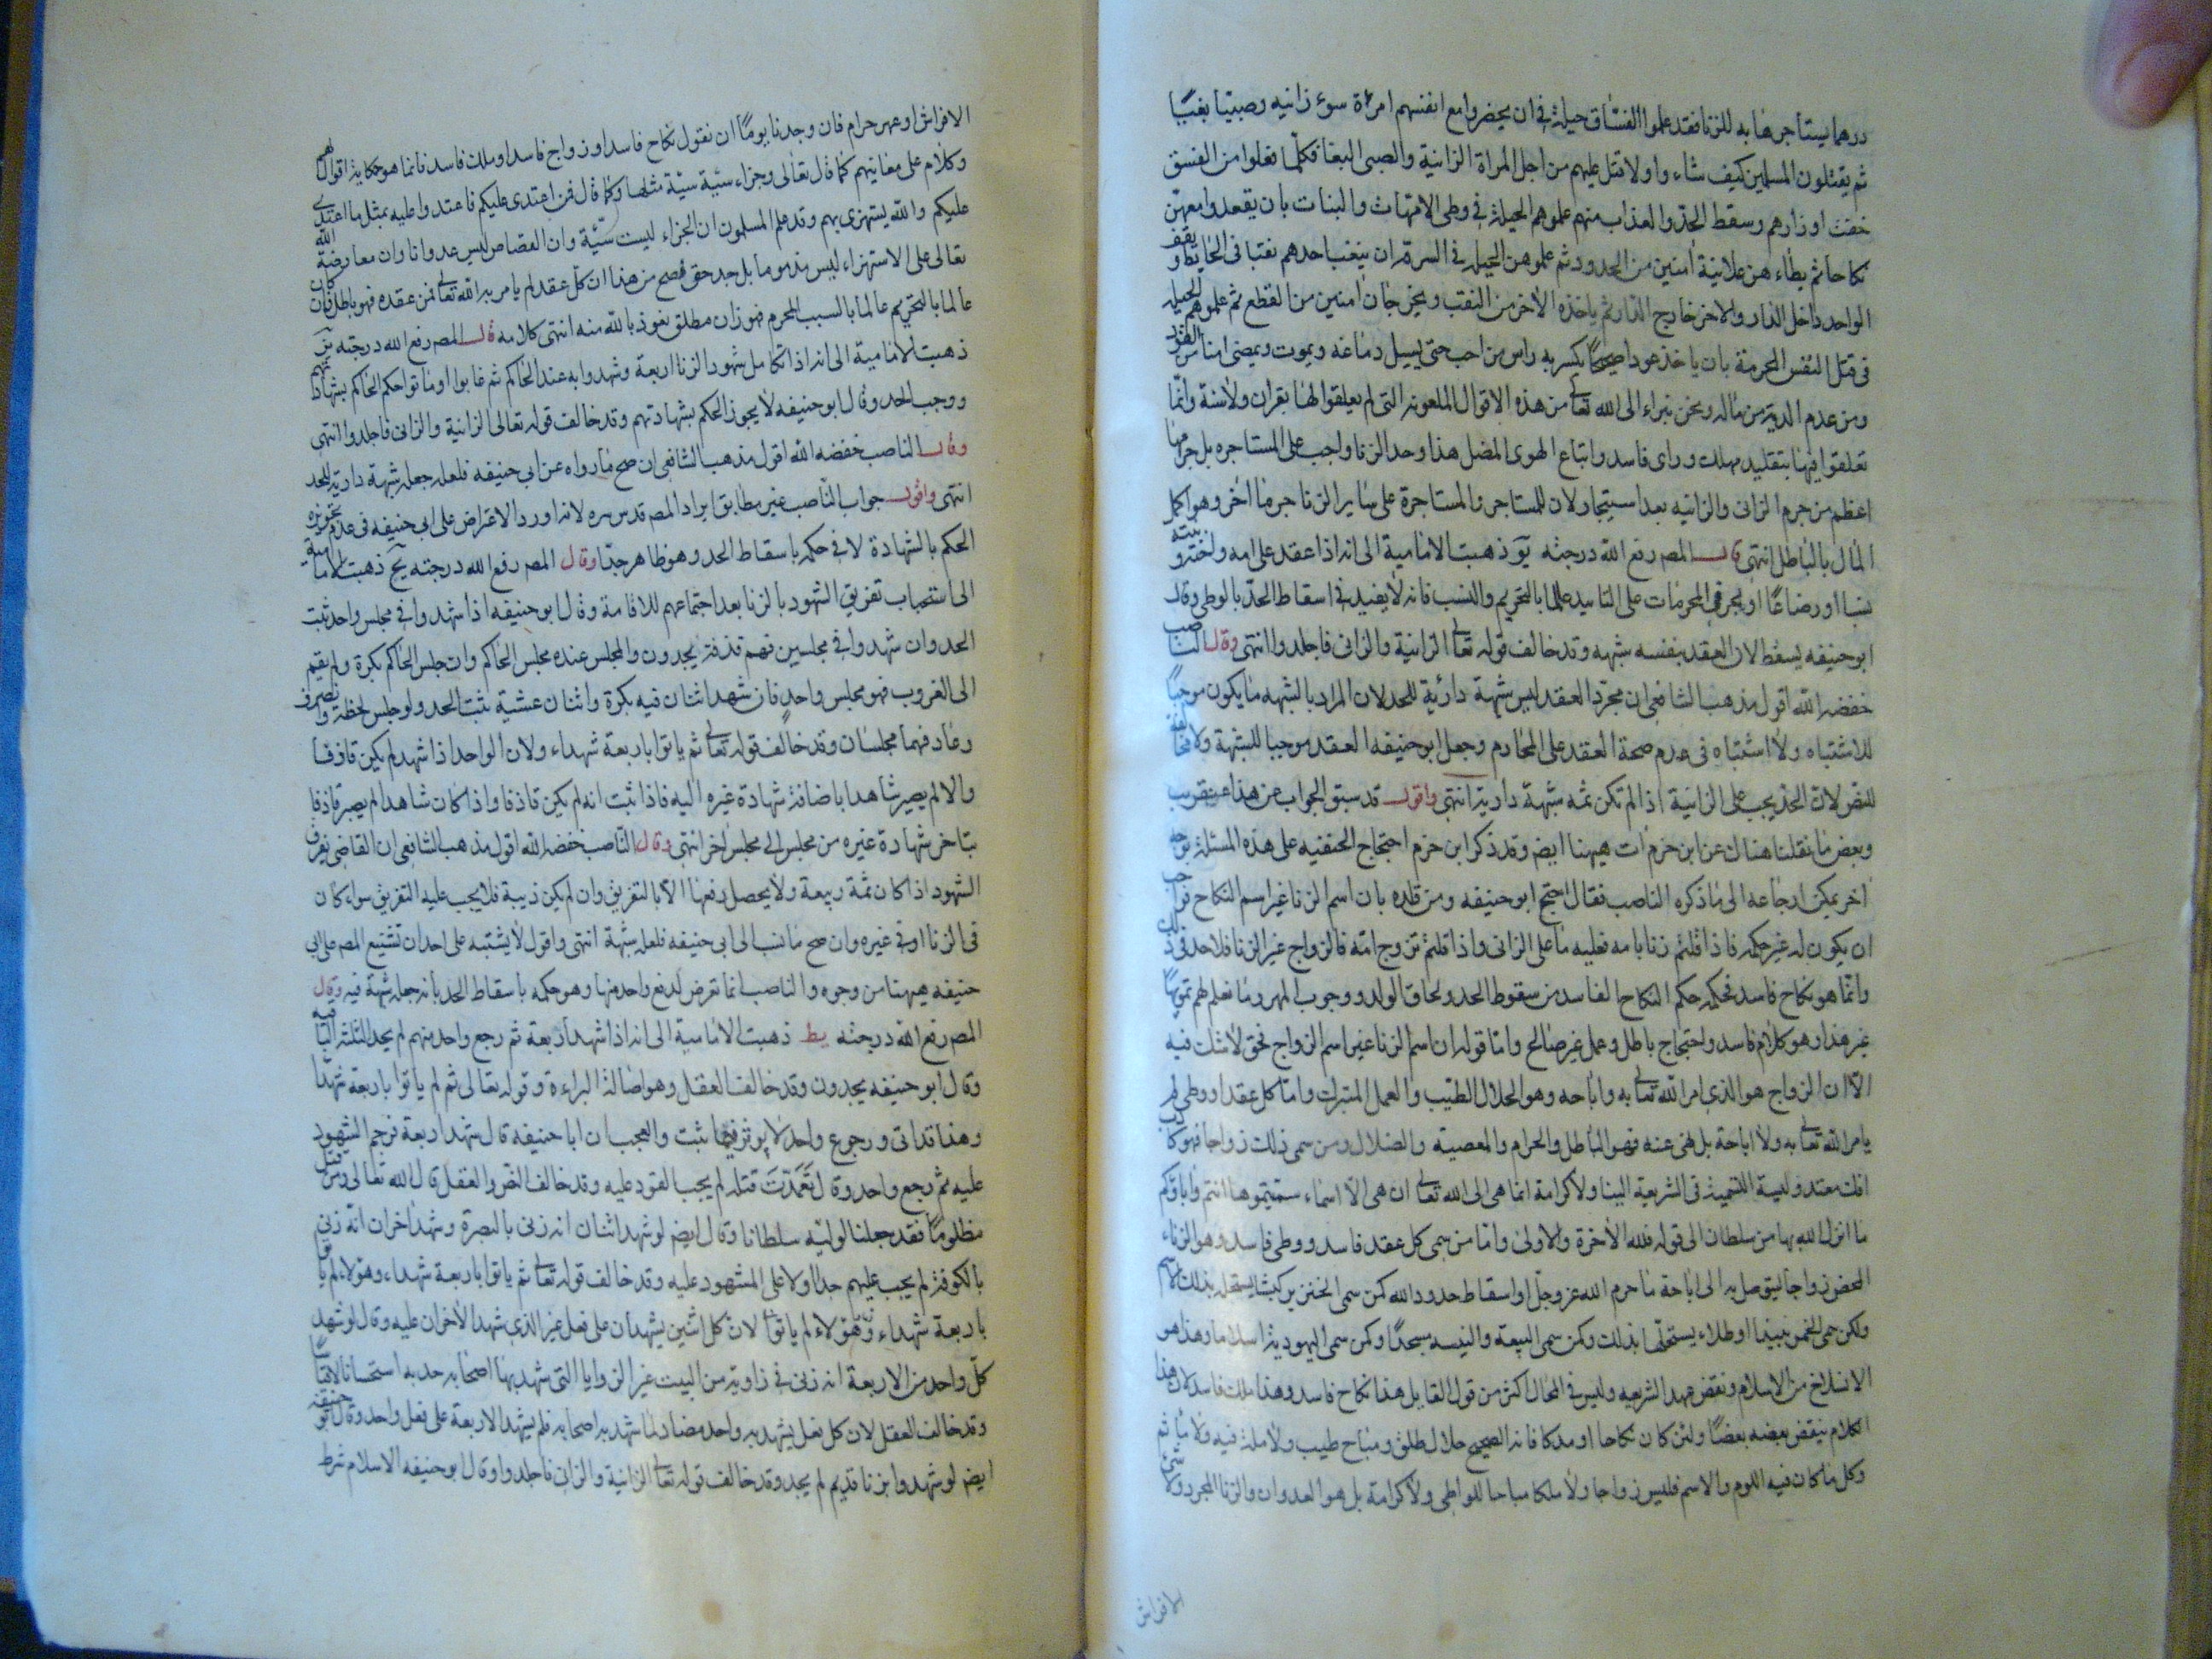 درهما يستاجرها به للزنا فقد علموا الفسّاق حيلة في ان يحضروا مع انفسهم امراة سوء زانيه وصبيّا بغيّا
ثم يقتلون المسلمين كيف شاء وا ولا قتل عليهم من اجل المراة الزانية والصبى البغا فكلّما فعلوا من الفسق
خفت اوزارهم وسقط الحدّ والعذاب منهم علموهم الحيلة في وطى الامّهات والبنات بان يقعدوا معهنّ
نكاحا ثم يطاء هن علانية آمنين من الحدود ثم علموهن الحيله فى السرقه ان ينقب احدهم نقبا فى الحايط ويقف
الواحد داخل الدار والآخر خارج الدار ثم ياخذه الآخر من النقب ويخرجان آمنين من القطع ثم علموهم الحيله
فى قتل النفس المحرمة بان ياخذ عودا صحيحا يكسر به راس من احب حتى يسيل دماغه ويموت ويمضى امنا من القود
ومن عدم الدية من ماله ونحن نبراء الى الله تعالى من هذه الاقوال الملعونه التى لم يعلقوا لها بقران ولا سنة وانّما
تعلقوا فيها بتقليد مهلك وراى فاسد واتباع الهوى المضل هذا وحد الزنا واجب على المستاجره بل جرمها
اعظم من جرم الزانى والزانيه بعد استيجار لان للمستاجر والمستاجرة على ساير الزنا جرما آخر وهو اكل
المال بالباطل انتهى قال المصر رفع الله درجته يو ذهبت الامامية الى انه اذا عقد على امه واخته وبنته
نسبا او رضاعًا او الجرفي المحرمات على التابيد عالما بالتحريم والنسب فانه لا يفيد في اسقاط الحدّ بالوطى وقال
ابو حنيفه يسقط لان العقد بنفسه شبهه وقد خالف قوله تعالى الزانية والزانى فاجلدوا انتهى وقال الناصب
خفضه الله اقول مذهب الشافعى ان مجرّد العقد ليس شبهة دارئة للحد لان المراد بالشبهه ما يكون موجبًا
للاشتباه ولا اشتباه فى عدم صحة العقد على المحارم وجعل ابو حنيفه العقد موجبا للشبهة ولا مخالفة
للنصّ لان الحدّ يجب على الزانية اذا لم تكن ثمه شبهة دارية انتهى واقول قد سبق الجواب عن هذا عنقريب
وبعض ما نقلناه هناك عن ابن حزم آت هيهنا ايضر وقد ذكر ابن حزم احتجاج الحنفيه على هذه المسئلة بوجه
اخر يمكن ارجاعه الى ما ذكره الناصب فقال احتج ابو حنيفه ومن قلده بان اسم الزنا غير اسم النكاح فواجب
ان يكون له غير حكمه فاذا قلتم زنا بامه فعليه ما على الزانى واذا قلتم تزوج امّه فالزواج غير الزنا فلا حد فى ذلك
وانّما هو نكاح فاسد فحكمه حكم النكاح الفاسد من سقوط الحد ولحاق الولد ووجوب المهر وما نعلم لهم تمويهًا
غير هذا وهو كلام فاسد واحتجاج باطل وعمل غير صالح وامّا قوله ان اسم الزنا غير اسم الزواج فحق لا شك فيه
الّا ان الزواج هو الذى امر الله تعالى به واباحه وهو الحلال الطيّب والعمل المبرك وامّا كل عقد او وطى لم
يامر الله تعالى به ولا اباحة بل نهى عنه فهو الباطل والحرام والمعصيه والضلال ومن سمى ذلك زواجا فهو كاذب
افك معتد وليست التسمية فى الشريعة الينا ولا كرامة انما هى الى الله تعالى ان هى الّا اسماء سمّيتموها انتم واباؤكم
ما انزل الله بها من سلطان الى قوله فلله الاخرة والاولى وامّا من سمى كل عقد فاسد ووطى فاسد وهو الزناء
المحض زواجا ليتوصل به الى اباحة ما حرم الله عز وجل او اسقاط حدود الله كمن سمى الخنزير كبشا ليستحله بذلك الاسم
ولكن سمى الخمر نبيذا او طلاء يستحلّها بذلك وكمن سمى البيعة والكنيسه مسجدًا وكمن سمى اليهودية اسلاما وهذا هو
الانسلاخ من الاسلام ونقض عهد الشريعه وليس فى المحال اكثر من قول القايل هذا نكاح فاسد وهذا ملك فاسد لان هذا
الكلام ينقض بعضه بعضًا ولئن كان نكاحا او ملكا فانه الصحيح حلال طلق ومباح طيب ولا ملامة فيه ولا مأثم
وكل ما كان فيه اللوم والاسم فليس زواجا ولا ملكا مباحا للواطى ولا كرامة بل هو العدوان والزنا المجرد ولا شئ
الا فراش
الا فراش او عهر حرام فان وجدنا يومًا ان نقول نكاح فاسد او زواج فاسد او ملك فاسد فانما هو حكاية اقوالهم
وكلام على معانيهم كما قال تعالى وجزاء سيّئة سيّئة مثلها وكما قال فمن اعتدى عليكم فاعتدوا عليه بمثل ما اعتدى
عليكم والله يستهزى بهم وقد علم المسلمون ان الجزاء ليست سيّئة وان القصاص ليس عدوانا وان معارضة الله
تعالى على الاستهزاء ليس مذموما بل جد حق فصح من هذا ان كلّ عقد لم يامر به الله تعالى فمن عقده فهو باطل فان كان
عالما بالتحريم عالما بالسبب المحرم فهو زان مطلق نعوذ بالله منه انتهى كلامه قال المصر رفع الله درجته يز
ذهبت الامامية الى انه اذا تكامل شهود الزنا اربعة وشهدوا به عند الحاكم ثم غابوا او ماتوا حكم الحاكم بشهادتهم
ووجب الحد وقال ابو حنيفه لا يجوز الحكم بشهادتهم وقد خالف قوله تعالى الزانية والزانى فاجلدوا انتهى
وقال الناصب خفضه الله اقول مذهب الشافعى ان صح ما رواه عن ابى حنيفه فلعله جعله شبهة دارية للحد
انتهى واقول جواب الناصب غير مطابق ايراد المصر قدس سره لانه اورد الاعتراض على ابى حنيفه فى عدم تجويزه
الحكم بالشهادة لا فى حكمه باسقاط الحد وهو ظاهر جدّا وقال المصر رفع الله درجته يح ذهبت الامامية
الى استحباب تفريق الشهود بالزنا بعد اجتماعهم للاقامة وقال ابو حنيفه اذا شهدوا في مجلس واحد ثبت
الحد وان شهدوا في مجلسين فهم قذفة يحدون والمجلس عنده مجلس الحاكم وان جلس الحاكم بكرة ولم يقم
الى الغروب فهو مجلس واحد فان شهد اثنان فيه بكرة واثنان عشية ثبت الحد ولو جلس لحظة وانصرف
وعاد فهما مجلسان وقد خالف قوله تعالى ثم ياتوا باربعة شهداء ولان الواحد اذا شهد لم يكن قاذفا
والا لم يصير شاهدا باضافة شهادة غيره اليه فاذا ثبت انه لم يكن قاذفا واذا كان شاهدا لم يصير قاذفا
بتاخر شهادة غيره من مجلس الى مجلس اخر انتهى وقال الناصب خفضه الله اقول مذهب الشافعى ان القاضى يفرق
الشهود اذا كان ثمة ريبة ولا يحصل دفعها الّا بالتفريق وان لم يكن ريبة فلا يجب عليه التفريق سواء كان
فى الزنا او فى غيره وان صح ما نسب الى ابى حنيفه فلعله شبهة انتهى واقول لا يشتبه على احد ان تشنيع المصر على ابى
حنيفه هيهنا من وجوه والناصب انّما تعرض لدفع واحد منها وهو حكمه باسقاط الحد بانه جعله شبهة فيه وقال
المصر رفع الله درجته يط ذهبت الامامية الى انه اذا شهد اربعة ثم رجع واحد منهم لم يحد الثلثه الباقيه
وقال ابو حنيفه يحدون وقد خالف العقل وهو اصالة البراءة وقوله تعالى ثم لم ياتوا باربعة شهدا
وهذا قد اتى ورجوع واحد لا يوثر فيما ثبت والعجب ان ابا حنيفه قال شهد اربعة فرجم المشهود
عليه ثم رجع واحد وقال تَعَمَّدّتُ قتله لم يجب القود عليه وقد خالف النصّ والعقل قال الله تعالى ومن قتل
مظلومًا فقد جعلنا لوليّه سلطانا وقال ايضر لو شهد اثنان انه زنى بالبصرة وشهد آخران انّه زنى
بالكوفة لم يجب عليهم حدّا ولا على المشهود عليه وقد خالف قوله تعالى ثم ياتوا باربعة شهداء وهؤلاء لم ياتوا
باربعة شهداء وهؤلاء لم ياتوا لانّ كل اثنين يشهدان على فعل غير الذى شهد الآخران عليه وقال لو شهد
كلّ واحد من الاربعة انه زنى فى زاوية من البيت غير الزوايا التى شهد بها اصحابه حد به استحسانا لا قياسًا
وقد خالف العقل لان كل فعل يشهد به واحد مضاد لما شهد به اصحابه فلم يشهد الاربعة على فعل واحد وقال ابو حنيفه
ايضر لو شهدوا بزنا قديم لم يحد وقد خالف قوله تعالى الزانية والزانى فاجلدوا وقال ابو حنيفه الاسلام شرط